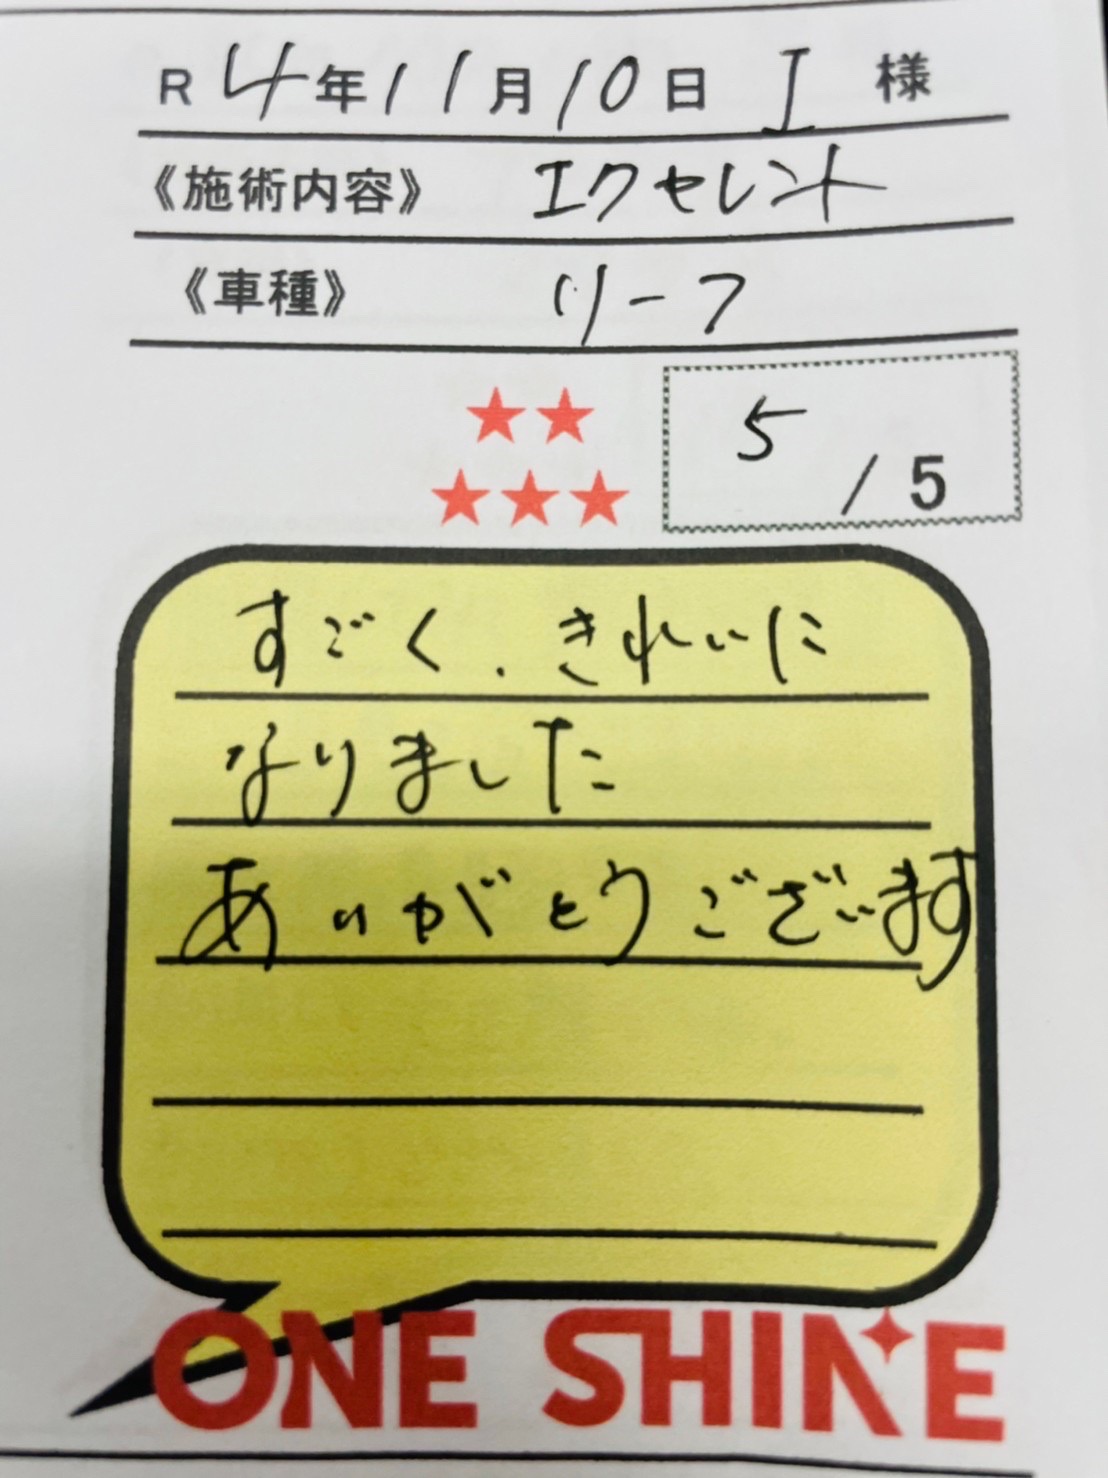 R 4年11月10日 I 様
《施術内容》 エクセレント
《車種》 リーフ
★★
★★★
5/5
すごく、きれいに
なりました
ありがとうございます
ONE SHINE